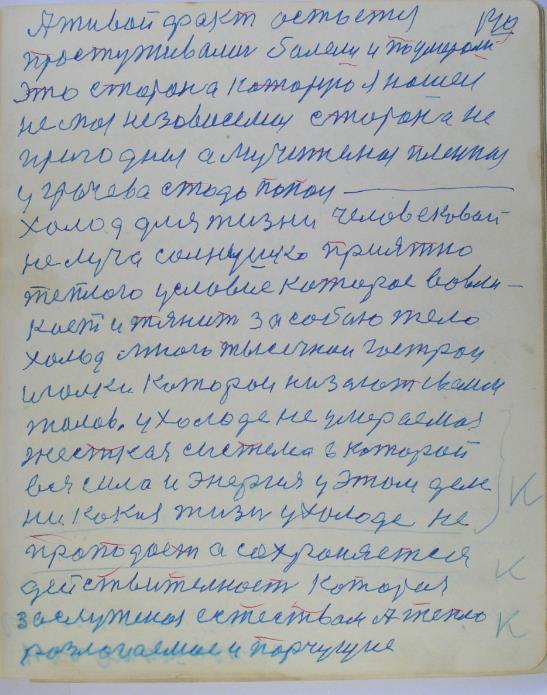 А живой факт остается
простуживали болели и помирали
это сторона которую я нашел
не стоя незовисемая сторона не
пригодная а мучежения пленная
у грачева стодо попои
холод для жизни человековай
не луча солнушко приятно
теплого условие которое вовли-
коет и тянит за собаю тело
холод много тысечной гострои
иголки которои низают своим
жалов. у холоде не умераемая
жесткая система в которой
вся сила и энергия у этом деле
ни какая жизн у холоде не
проподает а сохроняется
действителност которая
заслужена естествам А тепло
розлогаемае и